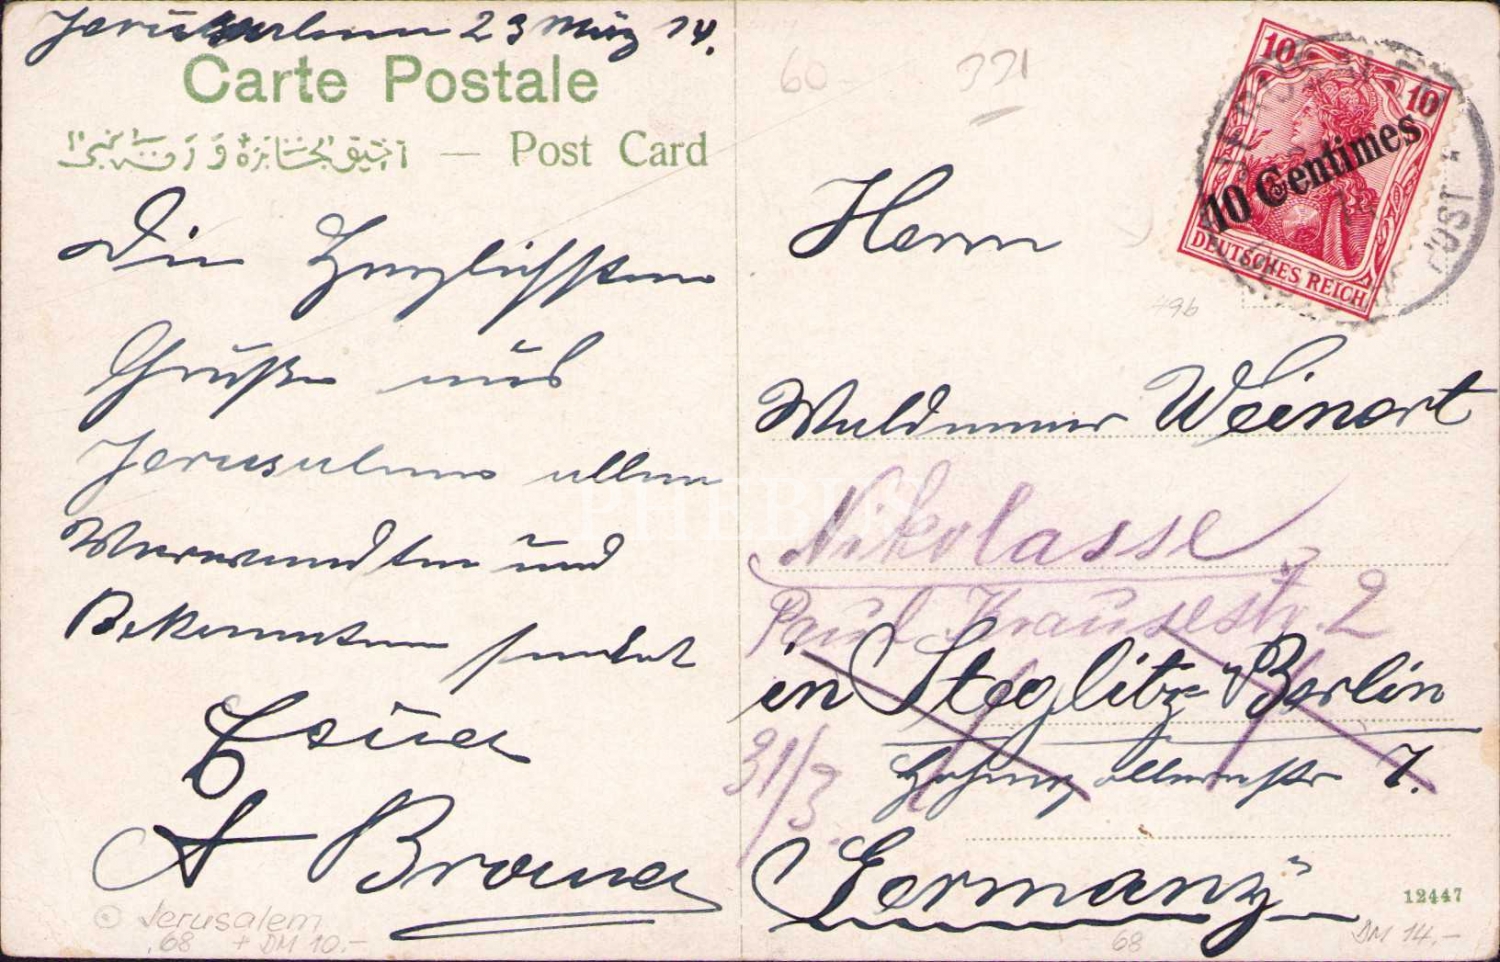 Jerusalem 23 März 14.
Carte Postale
Post Card
Die Herzlichsten
Grüße aus
Jerusalem allen
Verwandten und
Bekannten sendet
A Brauner
60.-
331
10 10
10 Centimes
DEUTSCHES REICH
JERUSALEM
POST
Herrn
Waldemar Weinert
Nikolasse
Paul Krausestr. 2
in Steglitz Berlin
31/3.
Hohenzollernstr 7.
Germany
12447
Jerusalem
.68 + DM 10.-
68
DM 14.-
PHEBUS